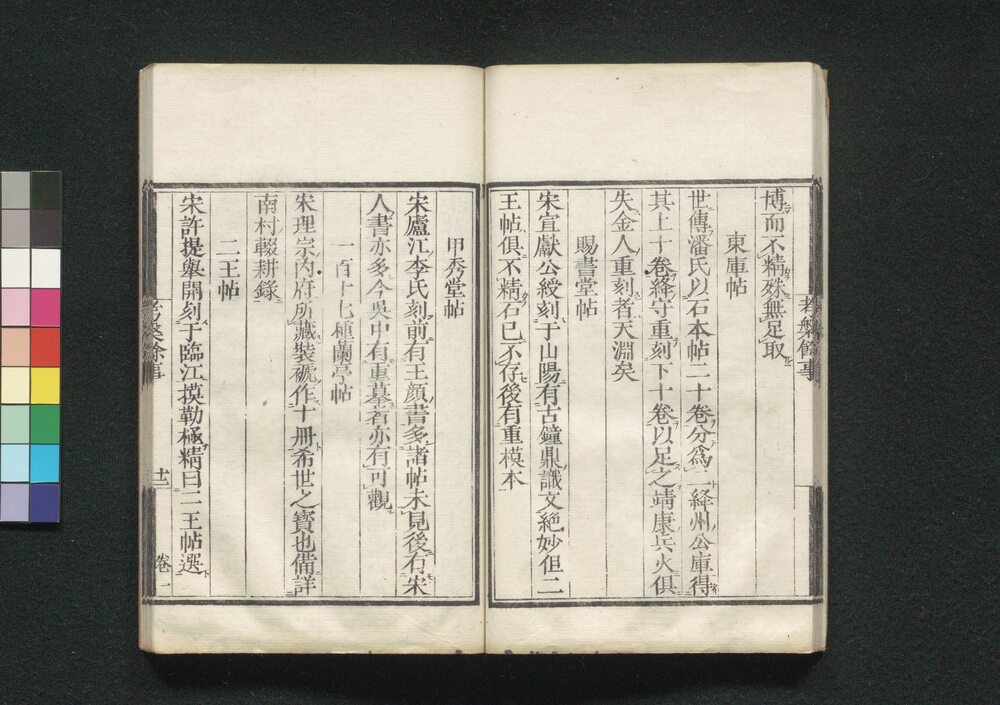 博而不精殊無足取
東庫帖
世傳潘氏以石本帖二十卷分為二絳州公庫得
其上十卷絳守重刻下十卷以足之靖康兵火俱
失金人重刻者天淵矣
賜書堂帖
宋宣獻公綬刻于山陽有古鐘鼎識文絶妙但二
王帖俱不精石已不存後有重模本
甲秀堂帖
宋廬江李氏刻前有王顔書多諸帖未見後有宋
人書亦多今吳中有重摹者亦有可觀
一百十七種蘭亭帖
宋理宗内府所藏裝褫作十册希世之寳也備詳
南村輟耕錄
二王帖
宋許提舉開刻于臨江摸勒極精曰二王帖選
考槃餘事
十二
卷一